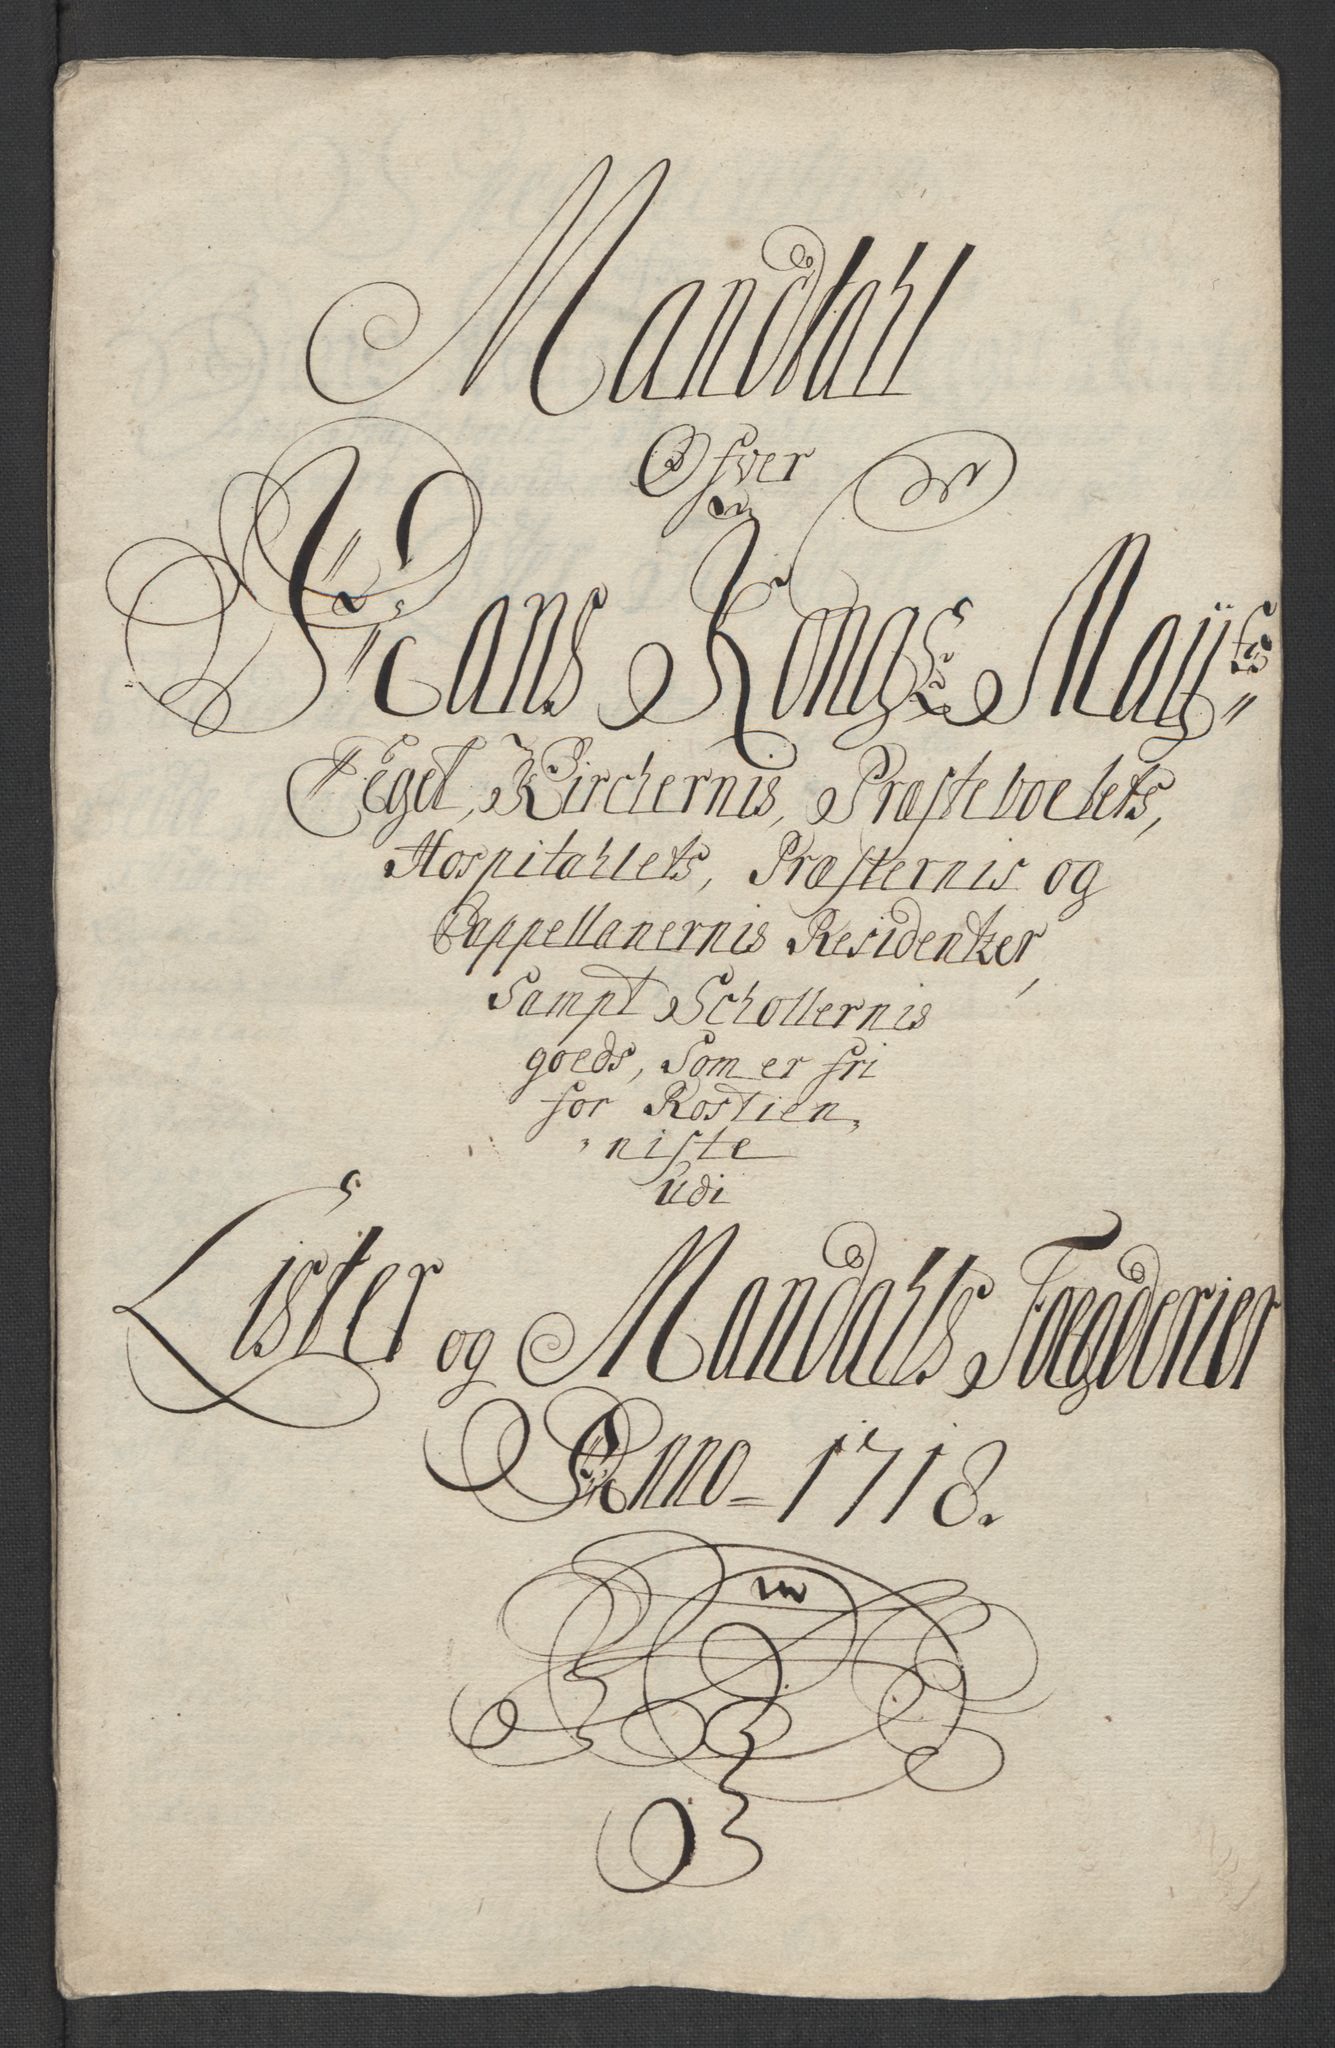 Mandtahl
Ofver
Hans Kongs: Mayts:
Eget, Kirchernis, Præsteboelets,
Hospitahlets, Præsternis og
Cappellanernis Residentzer,
Sampt Schollernis
goeds, Som er fri
for Rostien,
niste
Udi
Lister og Mandahls Foegderier
Anno - 1718.